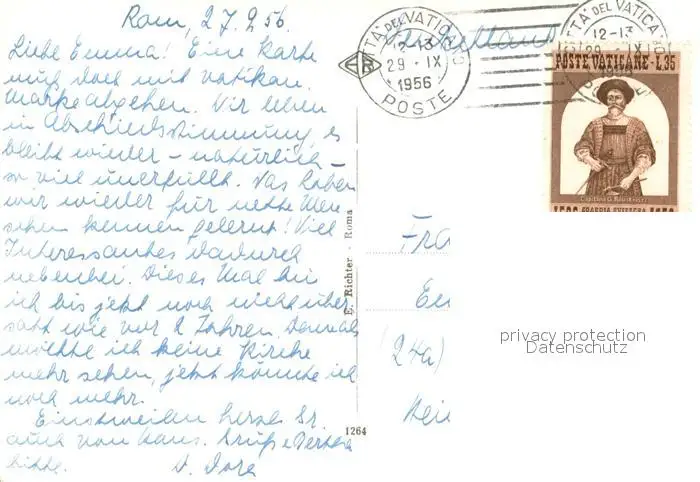 Rom, 27.9.56.
Liebe Emma! Eine Karte
muß doch mit Vatikan.
Marke abgehen. Wir leben
in Abschiedsstimmung, es
bleibt wieder – natürlich –
so viel unerfüllt. Was haben
wir wieder für nette Men
schen kennen gelernt! Viel
Interessantes dadurch
nebenbei. Dieses Mal bin
ich bis jetzt noch nicht über
satt wie vor 2 Jahren. Damals
mochte ich keine Kirche
mehr sehen, jetzt könnte ich
noch mehr.
Einstweilen herzl. Gr.
auch von Hans. Grüße
bitte.
D. Dora
E. Richter - Roma
1264
CITTA' DEL VATICANO
12-13
29 · IX
1956
POSTE
CITTA' DEL VATICANO
12-13
29 · IX
1956
POSTE VATICANE - L.35
1506 GUARDIA SVIZZERA 1956
Fra
(24a)
privacy protection
Datenschutz